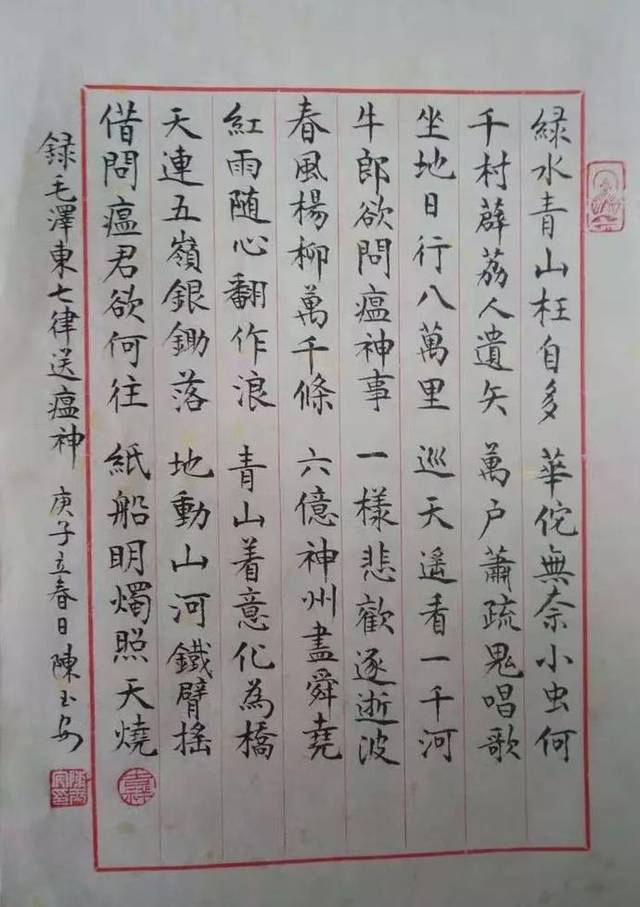 緑水青山枉自多 華佗無奈小虫何
千村薜荔人遺矢 萬户蕭疏鬼唱歌
坐地日行八萬里 巡天遥看一千河
牛郎欲問瘟神事 一樣悲歡逐逝波
春風楊柳萬千條 六億神州盡舜堯
紅雨随心翻作浪 青山着意化為橋
天連五嶺銀鋤落 地動山河鐵臂摇
借問瘟君欲何往 紙船明燭照天燒
録毛澤東七律送瘟神 庚子立春日陳玉安